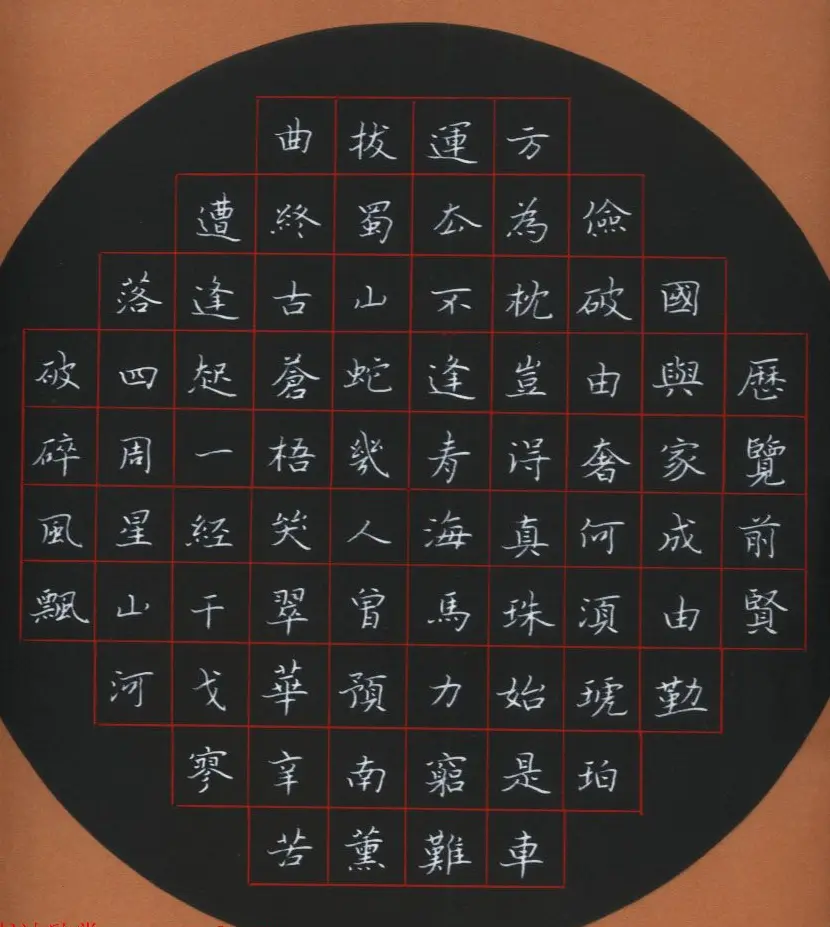 歷覽前賢
國與家成由勤
儉破由奢何須琥珀
方為枕豈得真珠始是車
運去不逢青海馬力窮難
拔蜀山蛇幾人曾預南薰
曲終古蒼梧笑翠華辛苦
遭逢起一經干戈寥
落四周星山河
破碎風飄